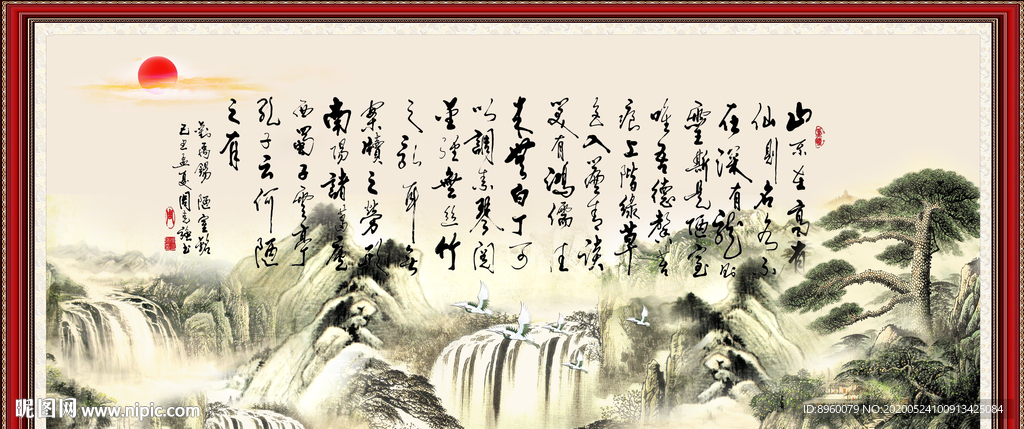 山不在高有
仙则名水不
在深有龙则
灵斯是陋室
唯吾德馨苔
痕上阶绿草
色入帘青谈
笑有鸿儒往
来无白丁可
以調素琴阅
金经無丝竹
之乱耳无
案牍之劳形
南陽諸葛廬
西蜀子雲亭
孔子云何陋
之有
劉禹錫陋室銘
昵图网 www.nipic.com
ID:8960079 NO:20200524100913425084